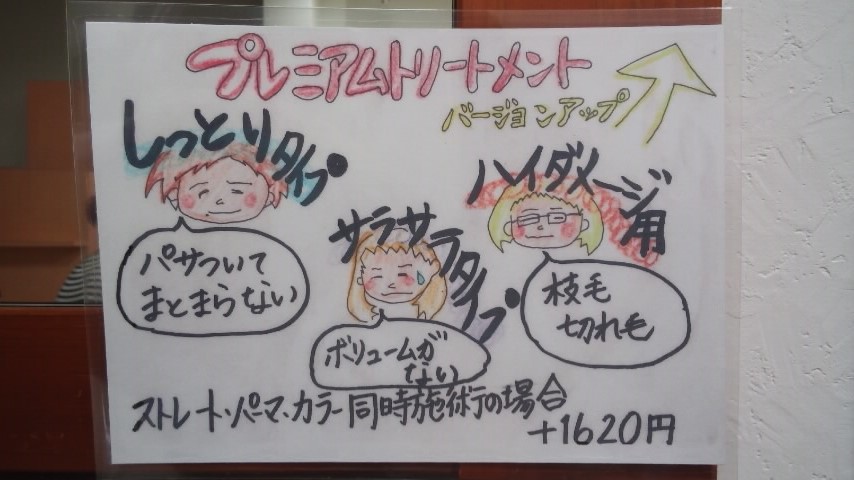 プレミアムトリートメント
バージョンアップ
しっとりタイプ
パサついて
まとまらない
サラサラタイプ
ボリュームが
ない
ハイダメージ用
枝毛
切れ毛
ストレート・パーマ、カラー同時施術の場合
+1620円